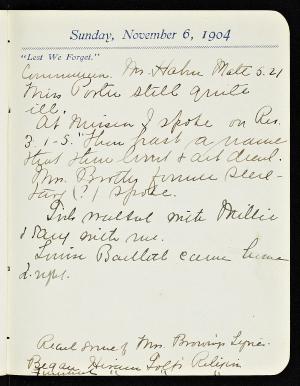 Sunday, November 6, 1904
"Lest We Forget."
Communion. Mr. Hahn Matt 5.21
Miss Porter still quite
ill.
At Mission I spoke on Rev.
3.1-5. "Thou hast a name
that thou livest & art dead.
Mrs. former Secre-
tary (?) spoke.
walked with Millie
& with me.
Bartlett came home
Read some of Mrs. Browning's Lyrics.
Began Hiram Golf's Religion